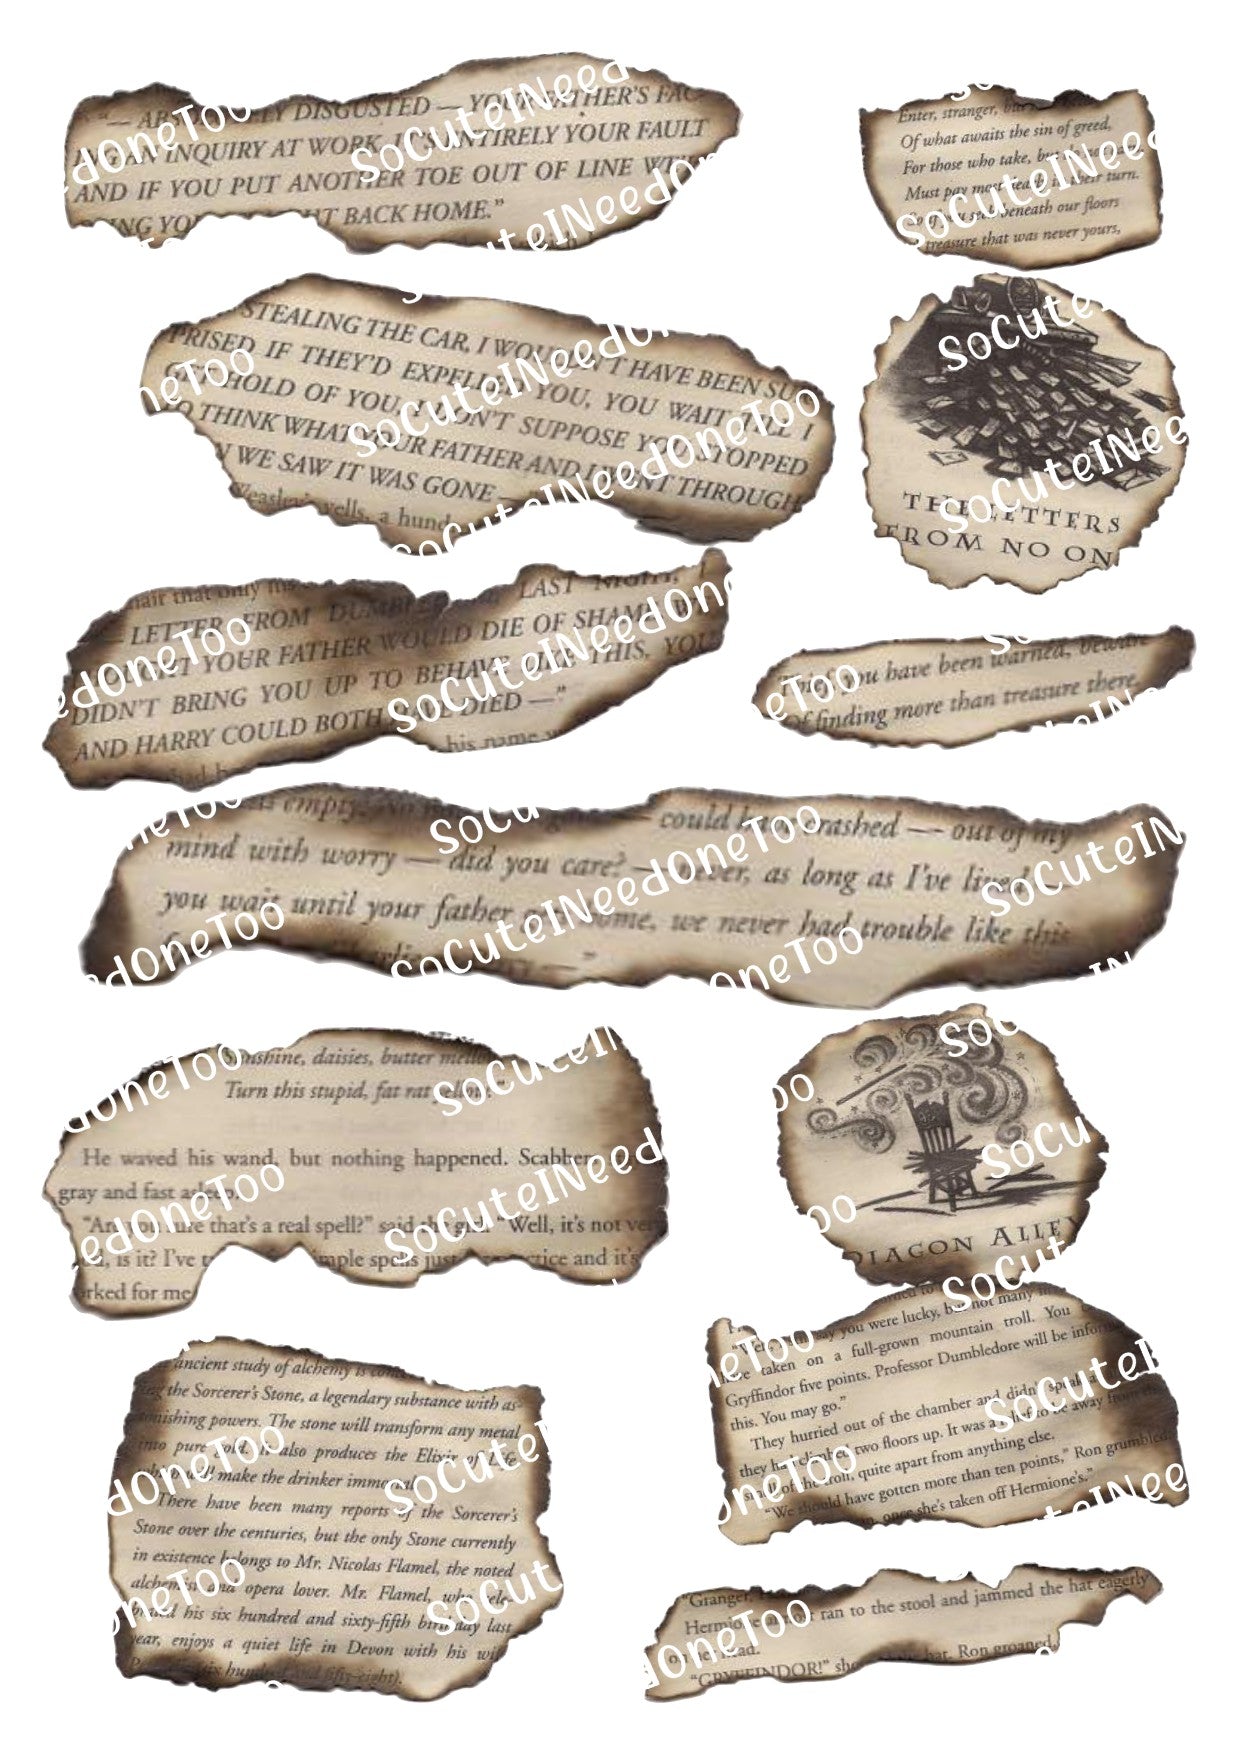 DISGUSTED — YOUR FATHER'S
AN INQUIRY AT WORK, IT'S ENTIRELY YOUR FAULT
AND IF YOU PUT ANOTHER TOE OUT OF LINE
BACK HOME."
Enter, stranger,
Of what awaits the sin of greed,
For those who take,
Must pay most dearly in their turn.
beneath our floors
treasure that was never yours,
STEALING THE CAR, I WOULDN'T HAVE BEEN
PRISED IF THEY'D EXPELLED YOU, YOU WAIT TILL I
HOLD OF YOU, I DON'T SUPPOSE YOU STOPPED
THINK WHAT YOUR FATHER AND I WENT THROUGH
WE SAW IT WAS GONE —
yells, a hund
THE LETTERS
FROM NO ON
hair that only
LETTER FROM LAST NIGHT,
YOUR FATHER WOULD DIE OF SHAME,
DIDN'T BRING YOU UP TO BEHAVE LIKE THIS, YOU
AND HARRY COULD BOTH HAVE DIED —"
his name
Thief, you have been warned, beware
Of finding more than treasure there.
empty! No — could have crashed — out of my
mind with worry — did you care? — never, as long as I've lived
you wait until your father gets home, we never had trouble like this
—"
Sunshine, daisies, butter mellow
Turn this stupid, fat rat yellow."
He waved his wand, but nothing happened. Scabbers
gray and fast asleep.
"Are you sure that's a real spell?" said the girl. "Well, it's not very
is it? I've simple spells just practice and it's
rked for me
DIAGON ALLEY
ancient study of alchemy is
the Sorcerer's Stone, a legendary substance with as-
tonishing powers. The stone will transform any metal
into pure gold. It also produces the Elixir of Life,
which will make the drinker immortal.
There have been many reports of the Sorcerer's
Stone over the centuries, but the only Stone currently
in existence belongs to Mr. Nicolas Flamel, the noted
alchemist and opera lover. Mr. Flamel, who cele-
brated his six hundred and sixty-fifth birthday last
year, enjoys a quiet life in Devon with his wife,
six hundred and fifty-eight).
say you were lucky, but not many
have taken on a full-grown mountain troll. You
Gryffindor five points. Professor Dumbledore will be informed
this. You may go."
They hurried out of the chamber and didn't speak
they had climbed two floors up. It was a relief to be away from the
smell of the troll, quite apart from anything else.
"We should have gotten more than ten points," Ron grumbled.
once she's taken off Hermione's."
"Granger,
Hermione almost ran to the stool and jammed the hat eagerly
on her head.
"GRYFFINDOR!" hat. Ron groaned.
SoCuteINeedOneToo